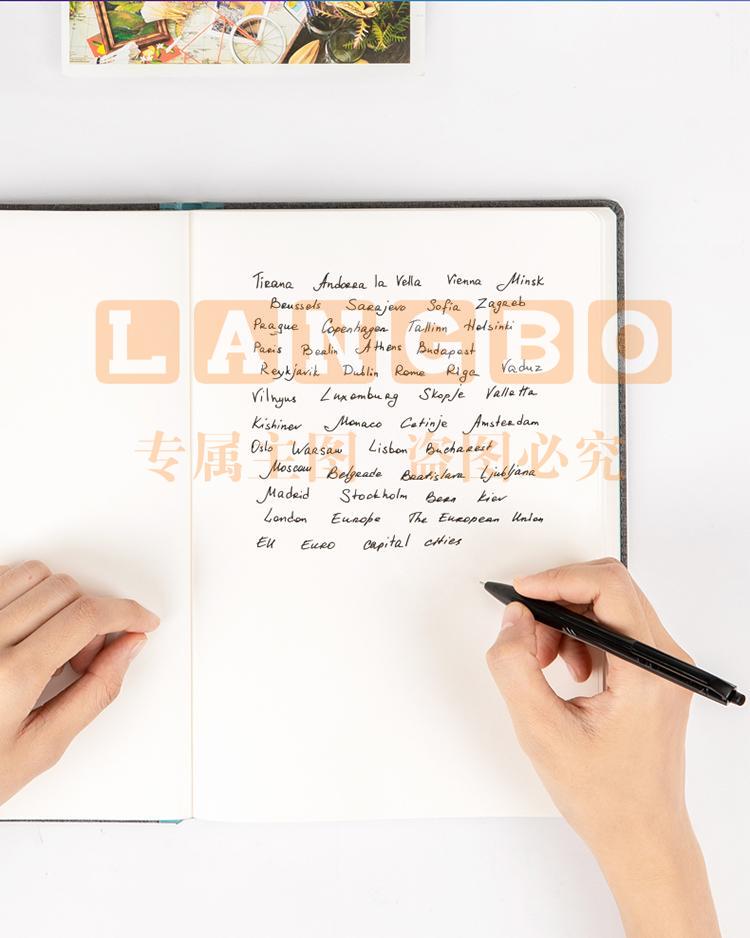 Tirana Andorra la Vella Vienna Minsk
Brussels Sarajevo Sofia Zagreb
LANGBO
Prague Copenhagen Tallinn Helsinki
Paris Berlin Athens Budapest
Reykjavik Dublin Rome Riga Vaduz
Vilnyus Luxemburg Skopje Valletta
Kishinev Monaco Cetinje Amsterdam
专属主图 盗图必究
Oslo Warsaw Lisbon Bucharest
Moscow Belgrade Bratislava Ljubljana
Madrid Stockholm Bern Kiev
London Europe The European Union
EU Euro capital cities